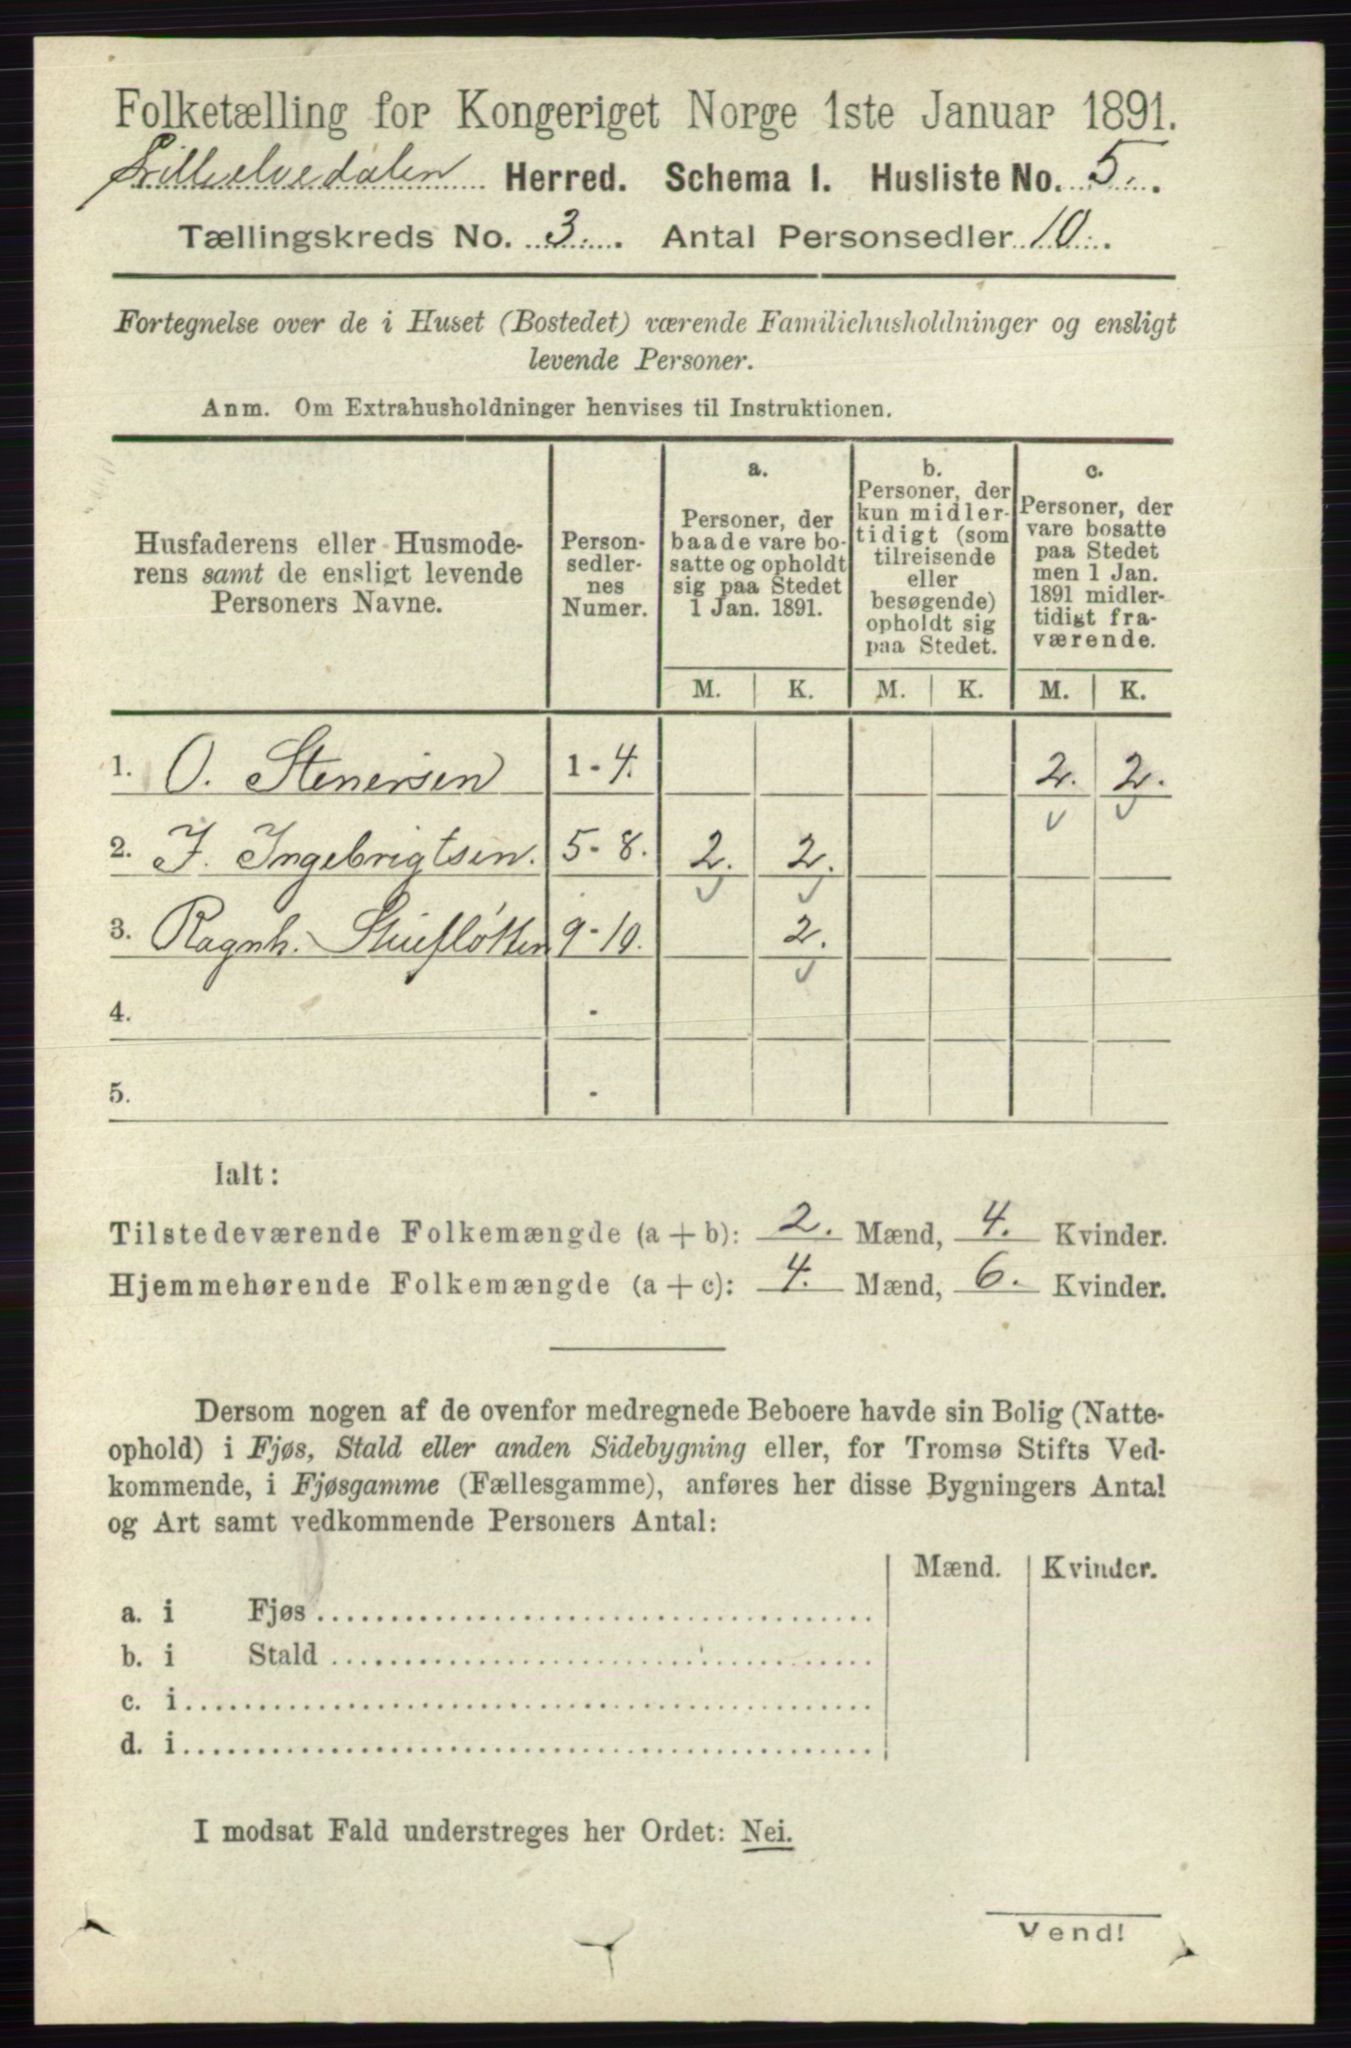 Folketælling for Kongeriget Norge 1ste Januar 1891.
Lilleelvedalen Herred. Schema I. Husliste No. 5.
Tællingskreds No. 3. Antal Personsedler 10.
Fortegnelse over de i Huset (Bostedet) værende Familiehusholdninger og ensligt
levende Personer.
Anm. Om Extrahusholdninger henvises til Instruktionen.
Husfaderens eller Husmode-
rens samt de ensligt levende
Personers Navne.
Person-
sedler-
nes
Numer.
a.
Personer, der
baade vare bo-
satte og opholdt
sig paa Stedet
1 Jan. 1891.
b.
Personer, der
kun midler-
tidigt (som
tilreisende
eller
besøgende)
opholdt sig
paa Stedet.
c.
Personer, der
vare bosatte
paa Stedet
men 1 Jan.
1891 midler-
tidigt fra-
værende.
M. K. M. K. M. K.
1. O. Stenersen 1-4. 2. 2.
2. J. Ingebrigtsen. 5-8. 2. 2.
3. Ragnh. Stufløtten 9-10. 2.
4. -
5. -
Ialt:
Tilstedeværende Folkemængde (a + b): 2. Mænd, 4. Kvinder.
Hjemmehørende Folkemængde (a + c): 4. Mænd, 6. Kvinder.
Dersom nogen af de ovenfor medregnede Beboere havde sin Bolig (Natte-
ophold) i Fjøs, Stald eller anden Sidebygning eller, for Tromsø Stifts Ved-
kommende, i Fjøsgamme (Fællesgamme), anføres her disse Bygningers Antal
og Art samt vedkommende Personers Antal:
Mænd. Kvinder.
a. i Fjøs
b. i Stald
c. i
d. i
I modsat Fald understreges her Ordet: Nei.
Vend!